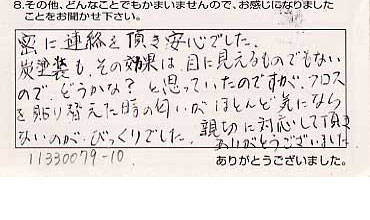 8.その他、どんなことでもかまいませんので、お感じになりました
ことをお聞かせ下さい。
密に連絡を頂き安心でした。
炭塗装も、その効果は目に見えるものでもない
ので、どうかな?と思っていたのですが、クロス
を貼り替えた時の匂いがほとんど気になら
ないのが、びっくりでした。親切に対応して頂き
ありがとうございました
11330079-10.
ありがとうございました。